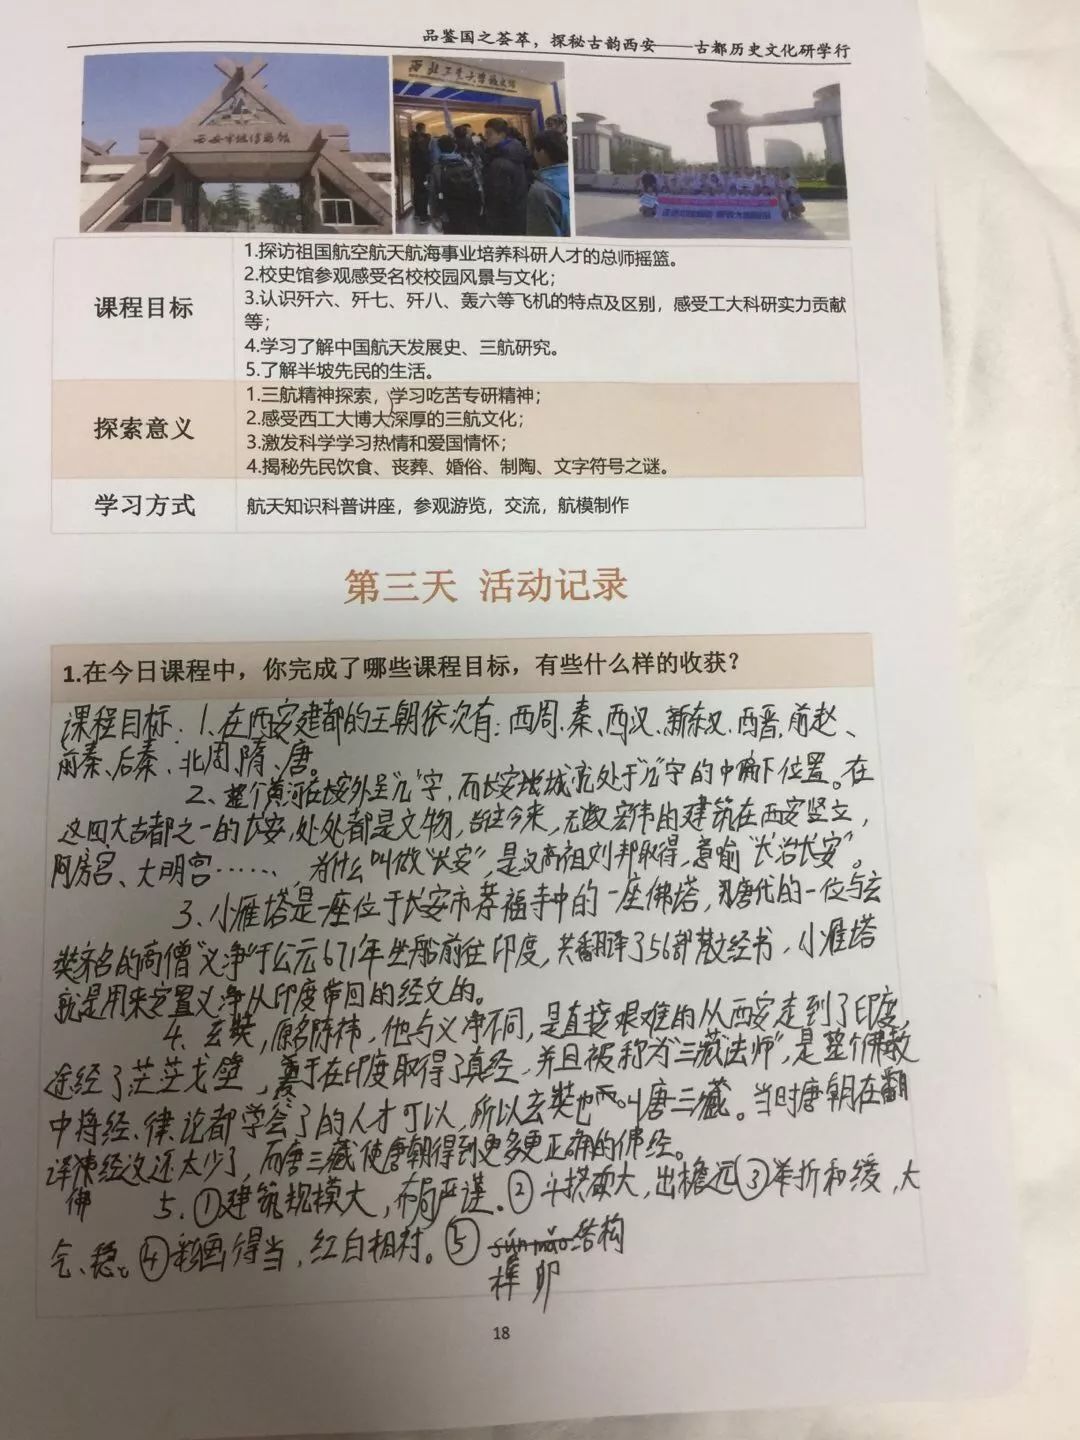 品鉴国之荟萃，探秘古韵西安——古都历史文化研学行
西安半坡博物馆
西北工业大学校史馆
课程目标
1.探访祖国航空航天航海事业培养科研人才的总师摇篮。
2.校史馆参观感受名校校园风景与文化；
3.认识歼六、歼七、歼八、轰六等飞机的特点及区别，感受工大科研实力贡献
等；
4.学习了解中国航天发展史、三航研究。
5.了解半坡先民的生活。
探索意义
1.三航精神探索，学习吃苦专研精神；
2.感受西工大博大深厚的三航文化；
3.激发科学学习热情和爱国情怀；
4.揭秘先民饮食、丧葬、婚俗、制陶、文字符号之谜。
学习方式
航天知识科普讲座，参观游览，交流，航模制作
第三天 活动记录
1.在今日课程中，你完成了哪些课程目标，有些什么样的收获？
课程目标：1.在西安建都的王朝依次有：西周、秦、西汉、新东汉、西晋、前赵、
前秦、后秦、北周、隋、唐。
2、整个黄河在长安外呈"几"字，而长安地域就处于"几"字的中偏下位置。在
这四大古都之一的长安，处处都是文物，古往今来，无数宏伟的建筑在西安竖立，
阿房宫、大明宫……，为什么叫做"长安"，是汉高祖刘邦取得，意喻"长治长安"。
3、小雁塔是一座位于长安市荐福寺中的一座佛塔，唐代的一位与玄
奘齐名的高僧"义净"于公元671年坐船前往印度，共翻译了56部梵文经书，小雁塔
就是用来安置义净从印度带回的经文的。
4、玄奘，原名陈祎，他与义净不同，是直接艰难的从西安走到了印度，
途经了茫茫戈壁，终于在印度取得了真经，并且被称为"三藏法师"，是整个佛教
中将经、律、论都学会了的人才可以，所以玄奘也叫唐三藏。当时唐朝在翻
译佛经没还太少了，而唐三藏使唐朝得到更多更正确的佛经。
5.①建筑规模大，布局严谨。②斗拱硕大，出檐远③举折和缓，大
气、稳。④彩画得当，红白相衬。⑤榫卯结构
18